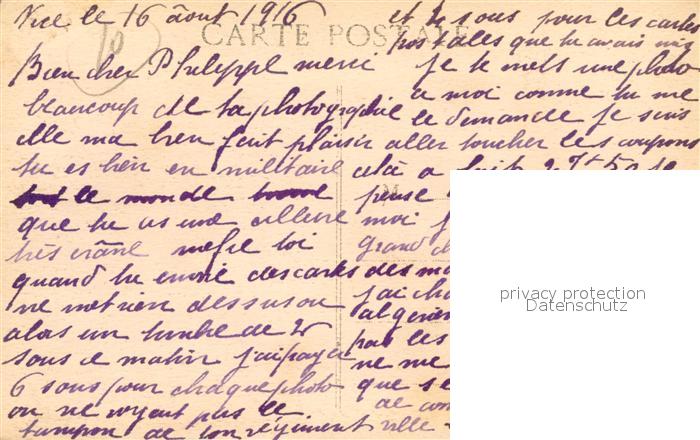 Nice le 16 août 1916
CARTE POSTALE
Bien cher Philippe merci
beaucoup de ta photographie
elle ma bien fait plaisir
tu es bien en militaire
le monde trouve
que tu as une allure
très crâne mefie toi
quand tu envoie des cartes
ne met rien dessus ou
alors un timbre de 2
sous ce matin j'ai payer
6 sous pour chaque photo
on ne voyent pas le
tampon de ton régiment
et 4 sous pour les cartes
postales que tu avais mis
je te mets une photo
a moi comme tu me
le demande je suis
aller toucher les coupons
celà a fait 27f 50 je
pense
moi j
grand
des mo
j'ai cha
algerien
pas les
ne me
que se
de con
ville
privacy protection
Datenschutz